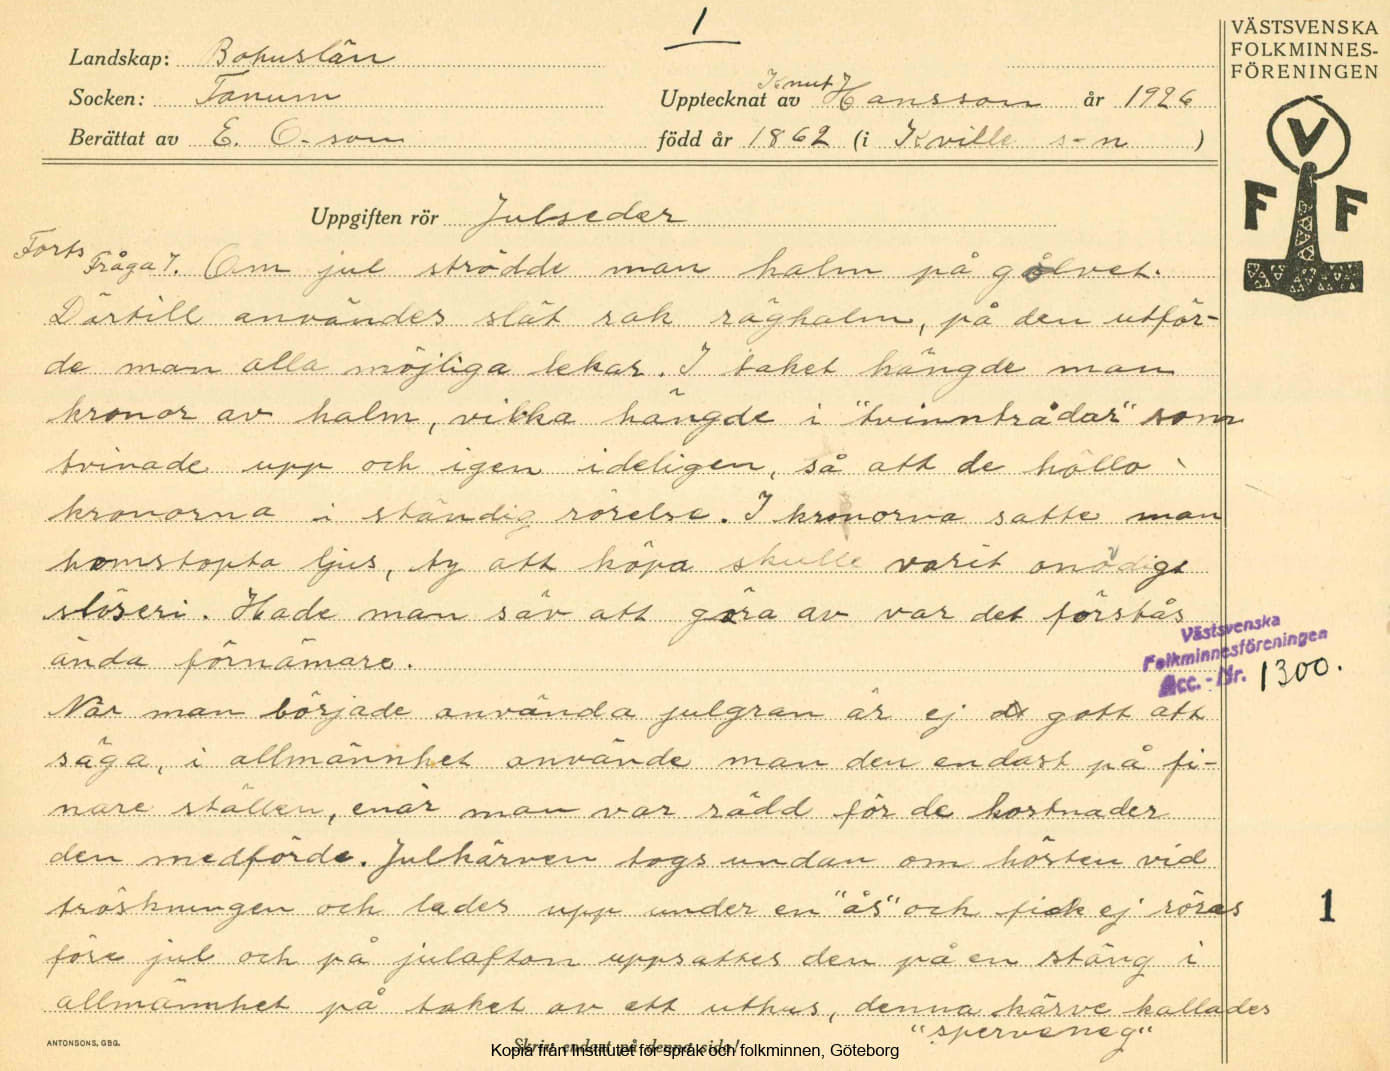 1
Landskap: Bohuslän
Socken: Tanum
Upptecknat av Knut Hansson år 1926
Berättat av E. O-son
född år 1862 (i Kville s-n )
VÄSTSVENSKA
FOLKMINNES-
FÖRENINGEN
V
F F
Uppgiften rör Julseder
Forts Fråga 7. Om jul strödde man halm på golvet.
Därtill användes slät rak råghalm, på den utför-
de man alla möjliga lekar. I taket hängde man
kronor av halm, vilka hängde i "tvinntrådar" som
tvinade upp och igen ideligen, så att de höllo
kronorna i ständig rörelse. I kronorna satte man
homstopta ljus, ty att köpa skulle varit onödigt
slöseri. Hade man säv att göra av var det förstås
ända förnämare.
Västsvenska
Folkminnesföreningen
Acc.-Nr. 1300.
När man började använda julgran är ej gott att
säga, i allmännhet använde man den endast på fi-
nare ställen, enär man var rädd för de kostnader
den medförde. Julkärven togs undan om hösten vid
tröskningen och lades upp under en "ås" och fick ej röras
1
före jul och på julafton uppsattes den på en stång i
allmännhet på taket av ett uthus, denna kärve kallades
"sperveneg"
ANTONSONS, GBG.
Skriv endast på denna sida!
Kopia från Institutet för språk och folkminnen, Göteborg